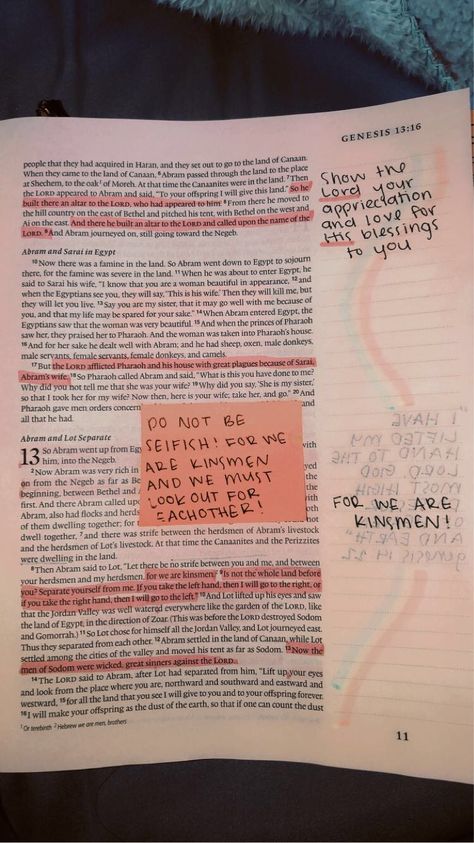 GENESIS 13:16
people that they had acquired in Haran, and they set out to go to the land of Canaan.
When they came to the land of Canaan, 6Abram passed through the land to the place
at Shechem, to the oak1 of Moreh. At that time the Canaanites were in the land. 7Then
the LORD appeared to Abram and said, "To your offspring I will give this land." So he
built there an altar to the LORD, who had appeared to him. 8From there he moved to
the hill country on the east of Bethel and pitched his tent, with Bethel on the west and
Ai on the east. And there he built an altar to the LORD and called upon the name of the
LORD. 9And Abram journeyed on, still going toward the Negeb.
Abram and Sarai in Egypt
10Now there was a famine in the land. So Abram went down to Egypt to sojourn
there, for the famine was severe in the land. 11When he was about to enter Egypt, he
said to Sarai his wife, "I know that you are a woman beautiful in appearance, 12and
when the Egyptians see you, they will say, 'This is his wife.' Then they will kill me, but
they will let you live. 13Say you are my sister, that it may go well with me because of
you, and that my life may be spared for your sake." 14When Abram entered Egypt, the
Egyptians saw that the woman was very beautiful. 15And when the princes of Pharaoh
saw her, they praised her to Pharaoh. And the woman was taken into Pharaoh's house.
16And for her sake he dealt well with Abram; and he had sheep, oxen, male donkeys,
male servants, female servants, female donkeys, and camels.
17But the LORD afflicted Pharaoh and his house with great plagues because of Sarai,
Abram's wife. 18So Pharaoh called Abram and said, "What is this you have done to me?
Why did you not tell me that she was your wife? 19Why did you say, 'She is my sister,'
so that I took her for my wife? Now then, here is your wife; take her, and go." 20And
Pharaoh gave men orders concern
and
all that he had.
Abram and Lot Separate
13 So Abram went up from Eg
with
him, into the Negeb.
2Now Abram was very rich in
on from the Negeb as far as Be
beginning, between Bethel and
first. And there Abram called upo
Abram, also had flocks and herds
of them dwelling together; for t
dwell together, 7and there was strife between the herdsmen of Abram's livestock
and the herdsmen of Lot's livestock. At that time the Canaanites and the Perizzites
were dwelling in the land.
8Then Abram said to Lot, "Let there be no strife between you and me, and between
your herdsmen and my herdsmen, for we are kinsmen.2 9Is not the whole land before
you? Separate yourself from me. If you take the left hand, then I will go to the right, or
if you take the right hand, then I will go to the left." 10And Lot lifted up his eyes and saw
that the Jordan Valley was well watered everywhere like the garden of the LORD, like
the land of Egypt, in the direction of Zoar. (This was before the LORD destroyed Sodom
and Gomorrah.) 11So Lot chose for himself all the Jordan Valley, and Lot journeyed east.
Thus they separated from each other. 12Abram settled in the land of Canaan, while Lot
settled among the cities of the valley and moved his tent as far as Sodom. 13Now the
men of Sodom were wicked, great sinners against the LORD.
14The LORD said to Abram, after Lot had separated from him, "Lift up your eyes
and look from the place where you are, northward and southward and eastward and
westward, 15for all the land that you see I will give to you and to your offspring forever.
16I will make your offspring as the dust of the earth, so that if one can count the dust
1 Or terebinth 2 Hebrew we are men, brothers
11
DO NOT BE
SElFISH! FOR WE
ARE KINSMEN
AND WE MUST
LOOK OUT FOR
EACHOTHER!
Show the
Lord your
appriectation
and love for
His blessings
to you
FOR WE ARE
KINSMEN!